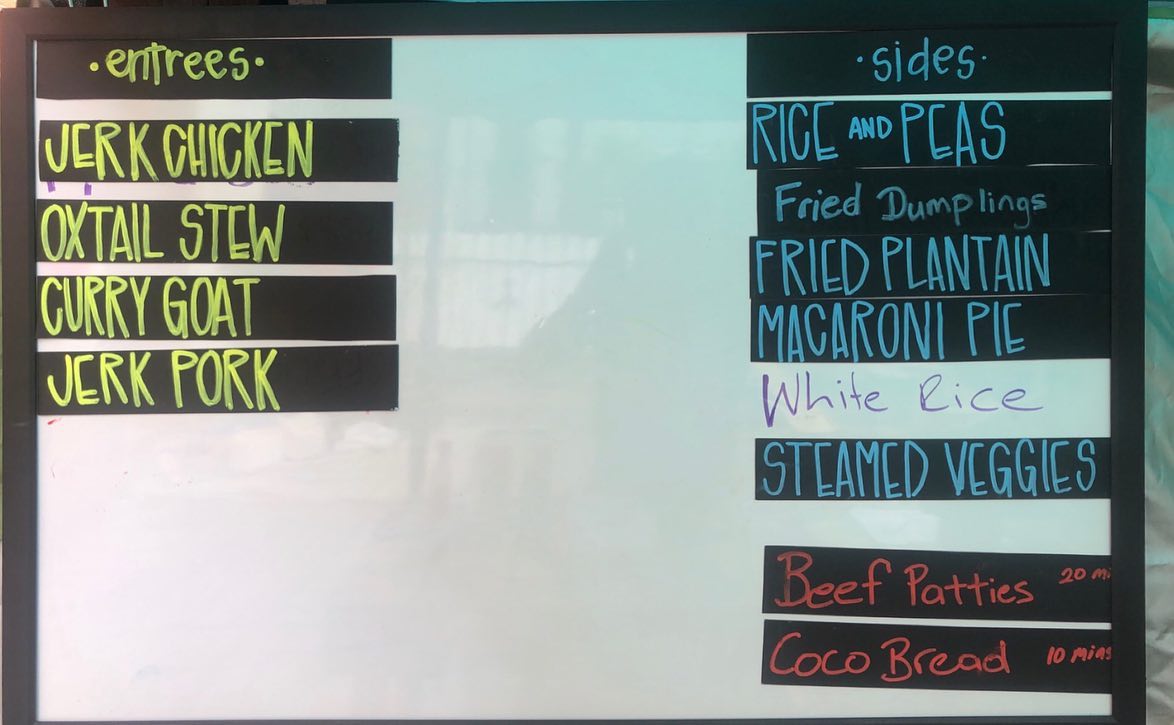 ·entrees·
JERK CHICKEN
OXTAIL STEW
CURRY GOAT
JERK PORK
·sides·
RICE AND PEAS
Fried Dumplings
FRIED PLANTAIN
MACARONI PIE
White Rice
STEAMED VEGGIES
Beef Patties 20 mi
Coco Bread 10 mins